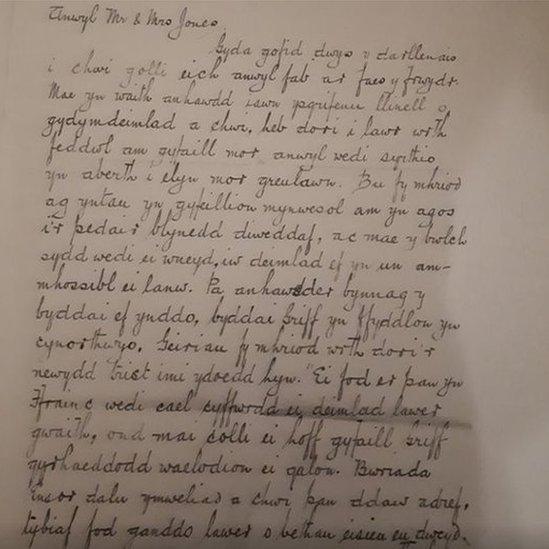 Anwyl Mr & Mrs Jones.
Gyda gofid dwys y darllenais
i chwi golli eich anwyl fab ar faes y frwydr.
Mae yn waith anhawdd iawn ysgrifenu llinell o
gydymdeimlad a chwi, heb dori i lawr wrth
feddwl am gyfaill mor anwyl wedi syrthio
yn aberth i elyn mor greulawn. Bu fy mhriod
ag yntau yn gyfeillion mynwesol am yn agos
i'r pedair blynedd diweddaf, ac mae y bwlch
sydd wedi ei wneyd, iw deimlad ef yn un am-
mhossibl ei lanw. Pa anhawsder bynnag y
byddai ef ynddo, byddai Griff yn ffyddlon yn
cynorthwyo. Geiriau fy mhriod wrth dori'r
newydd trist imi ydoedd hyn. "Ei fod er pan yn
Ffrainc wedi cael cyffwrdd ei deimlad lawer
gwaith, ond mai colli ei hoff gyfaill Griff
gyrhaeddodd waelodion ei galon. Bwriada
dalu ymweliad a chwi pan ddaw adref,
tybiaf fod ganddo lawer o bethau eisieu eu dweyd.